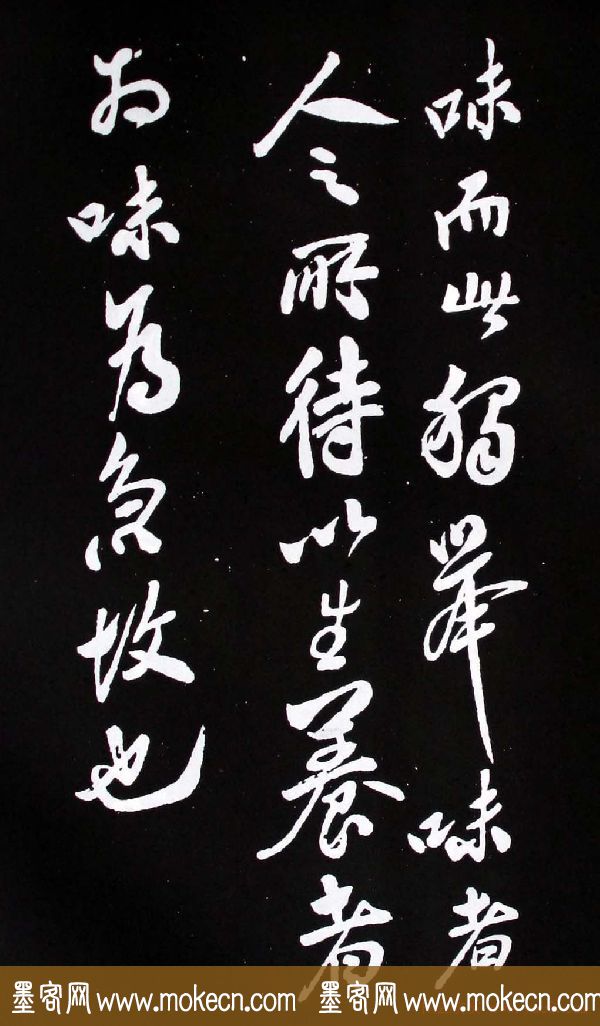 味而此獨舉味者
人之所待以生養者
於味為急故也
墨客网 www.mokecn.com 墨客网 www.mokecn.com